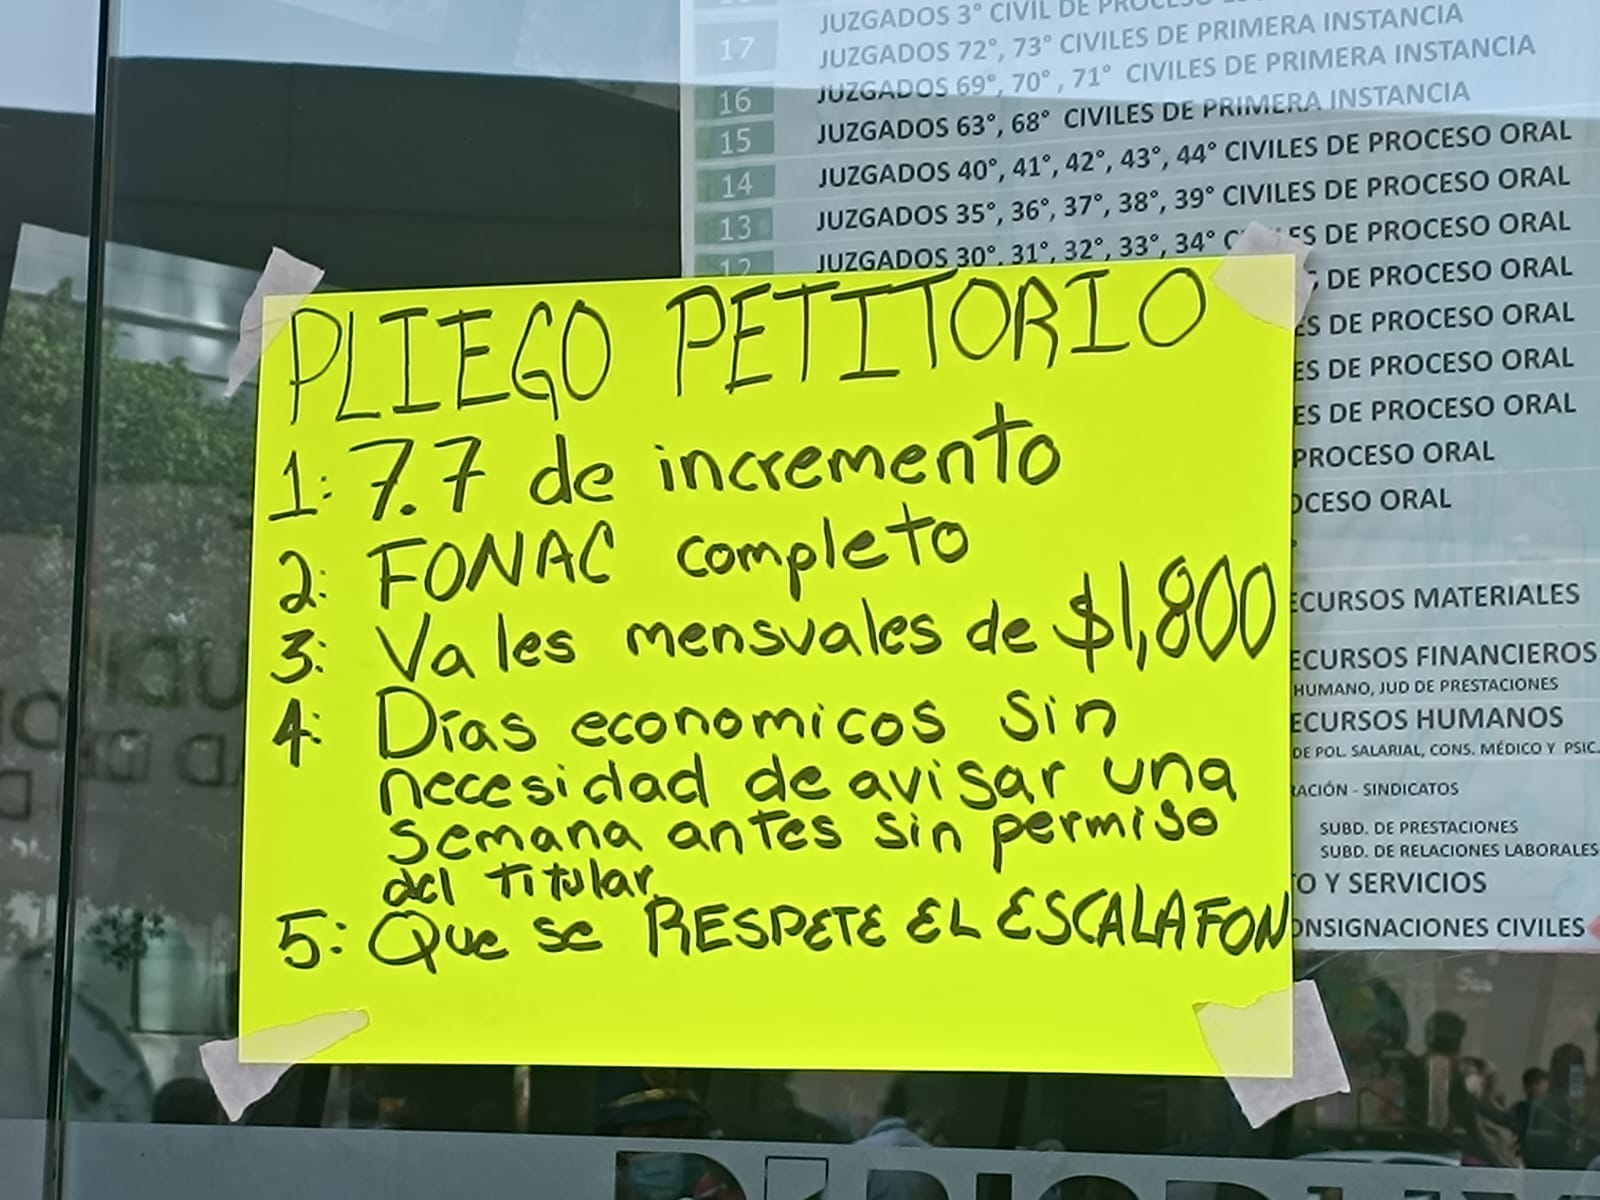 JUZGADOS 3° CIVIL DE PROCESO
17 JUZGADOS 72°, 73° CIVILES DE PRIMERA INSTANCIA
16 JUZGADOS 69°, 70°, 71° CIVILES DE PRIMERA INSTANCIA
15 JUZGADOS 63°, 68° CIVILES DE PRIMERA INSTANCIA
14 JUZGADOS 40°, 41°, 42°, 43°, 44° CIVILES DE PROCESO ORAL
13 JUZGADOS 35°, 36°, 37°, 38°, 39° CIVILES DE PROCESO ORAL
12 JUZGADOS 30°, 31°, 32°, 33°, 34° C ES DE PROCESO ORAL
DE PROCESO ORAL
ES DE PROCESO ORAL
ES DE PROCESO ORAL
ES DE PROCESO ORAL
PROCESO ORAL
OCESO ORAL
ECURSOS MATERIALES
ECURSOS FINANCIEROS
HUMANO, JUD DE PRESTACIONES
ECURSOS HUMANOS
DE POL. SALARIAL, CONS. MÉDICO Y PSIC.
RACIÓN - SINDICATOS
SUBD. DE PRESTACIONES
SUBD. DE RELACIONES LABORALES
O Y SERVICIOS
ONSIGNACIONES CIVILES
PLIEGO PETITORIO
1: 7.7 de incremento
2: FONAC completo
3: Vales mensuales de $1,800
4: Días economicos sin
necesidad de avisar una
semana antes sin permiso
del titular.
5: Que se RESPETE EL ESCALAFON